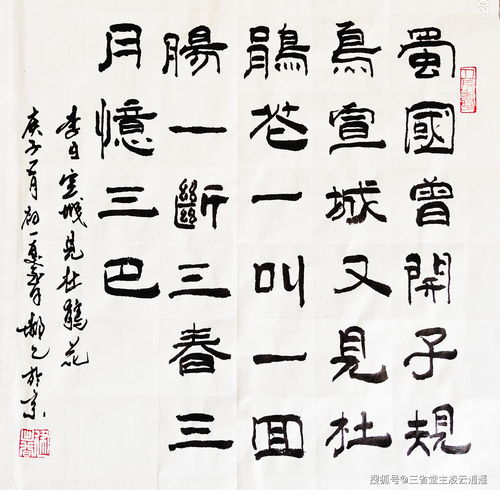 蜀國曾開子規
鳥宣城又見杜
鵑花一叫一回
腸一斷三春三
月憶三巴
李白宣城見杜鵑花
庚子一月初一於京
搜狐号@三省堂主凌云逍遥